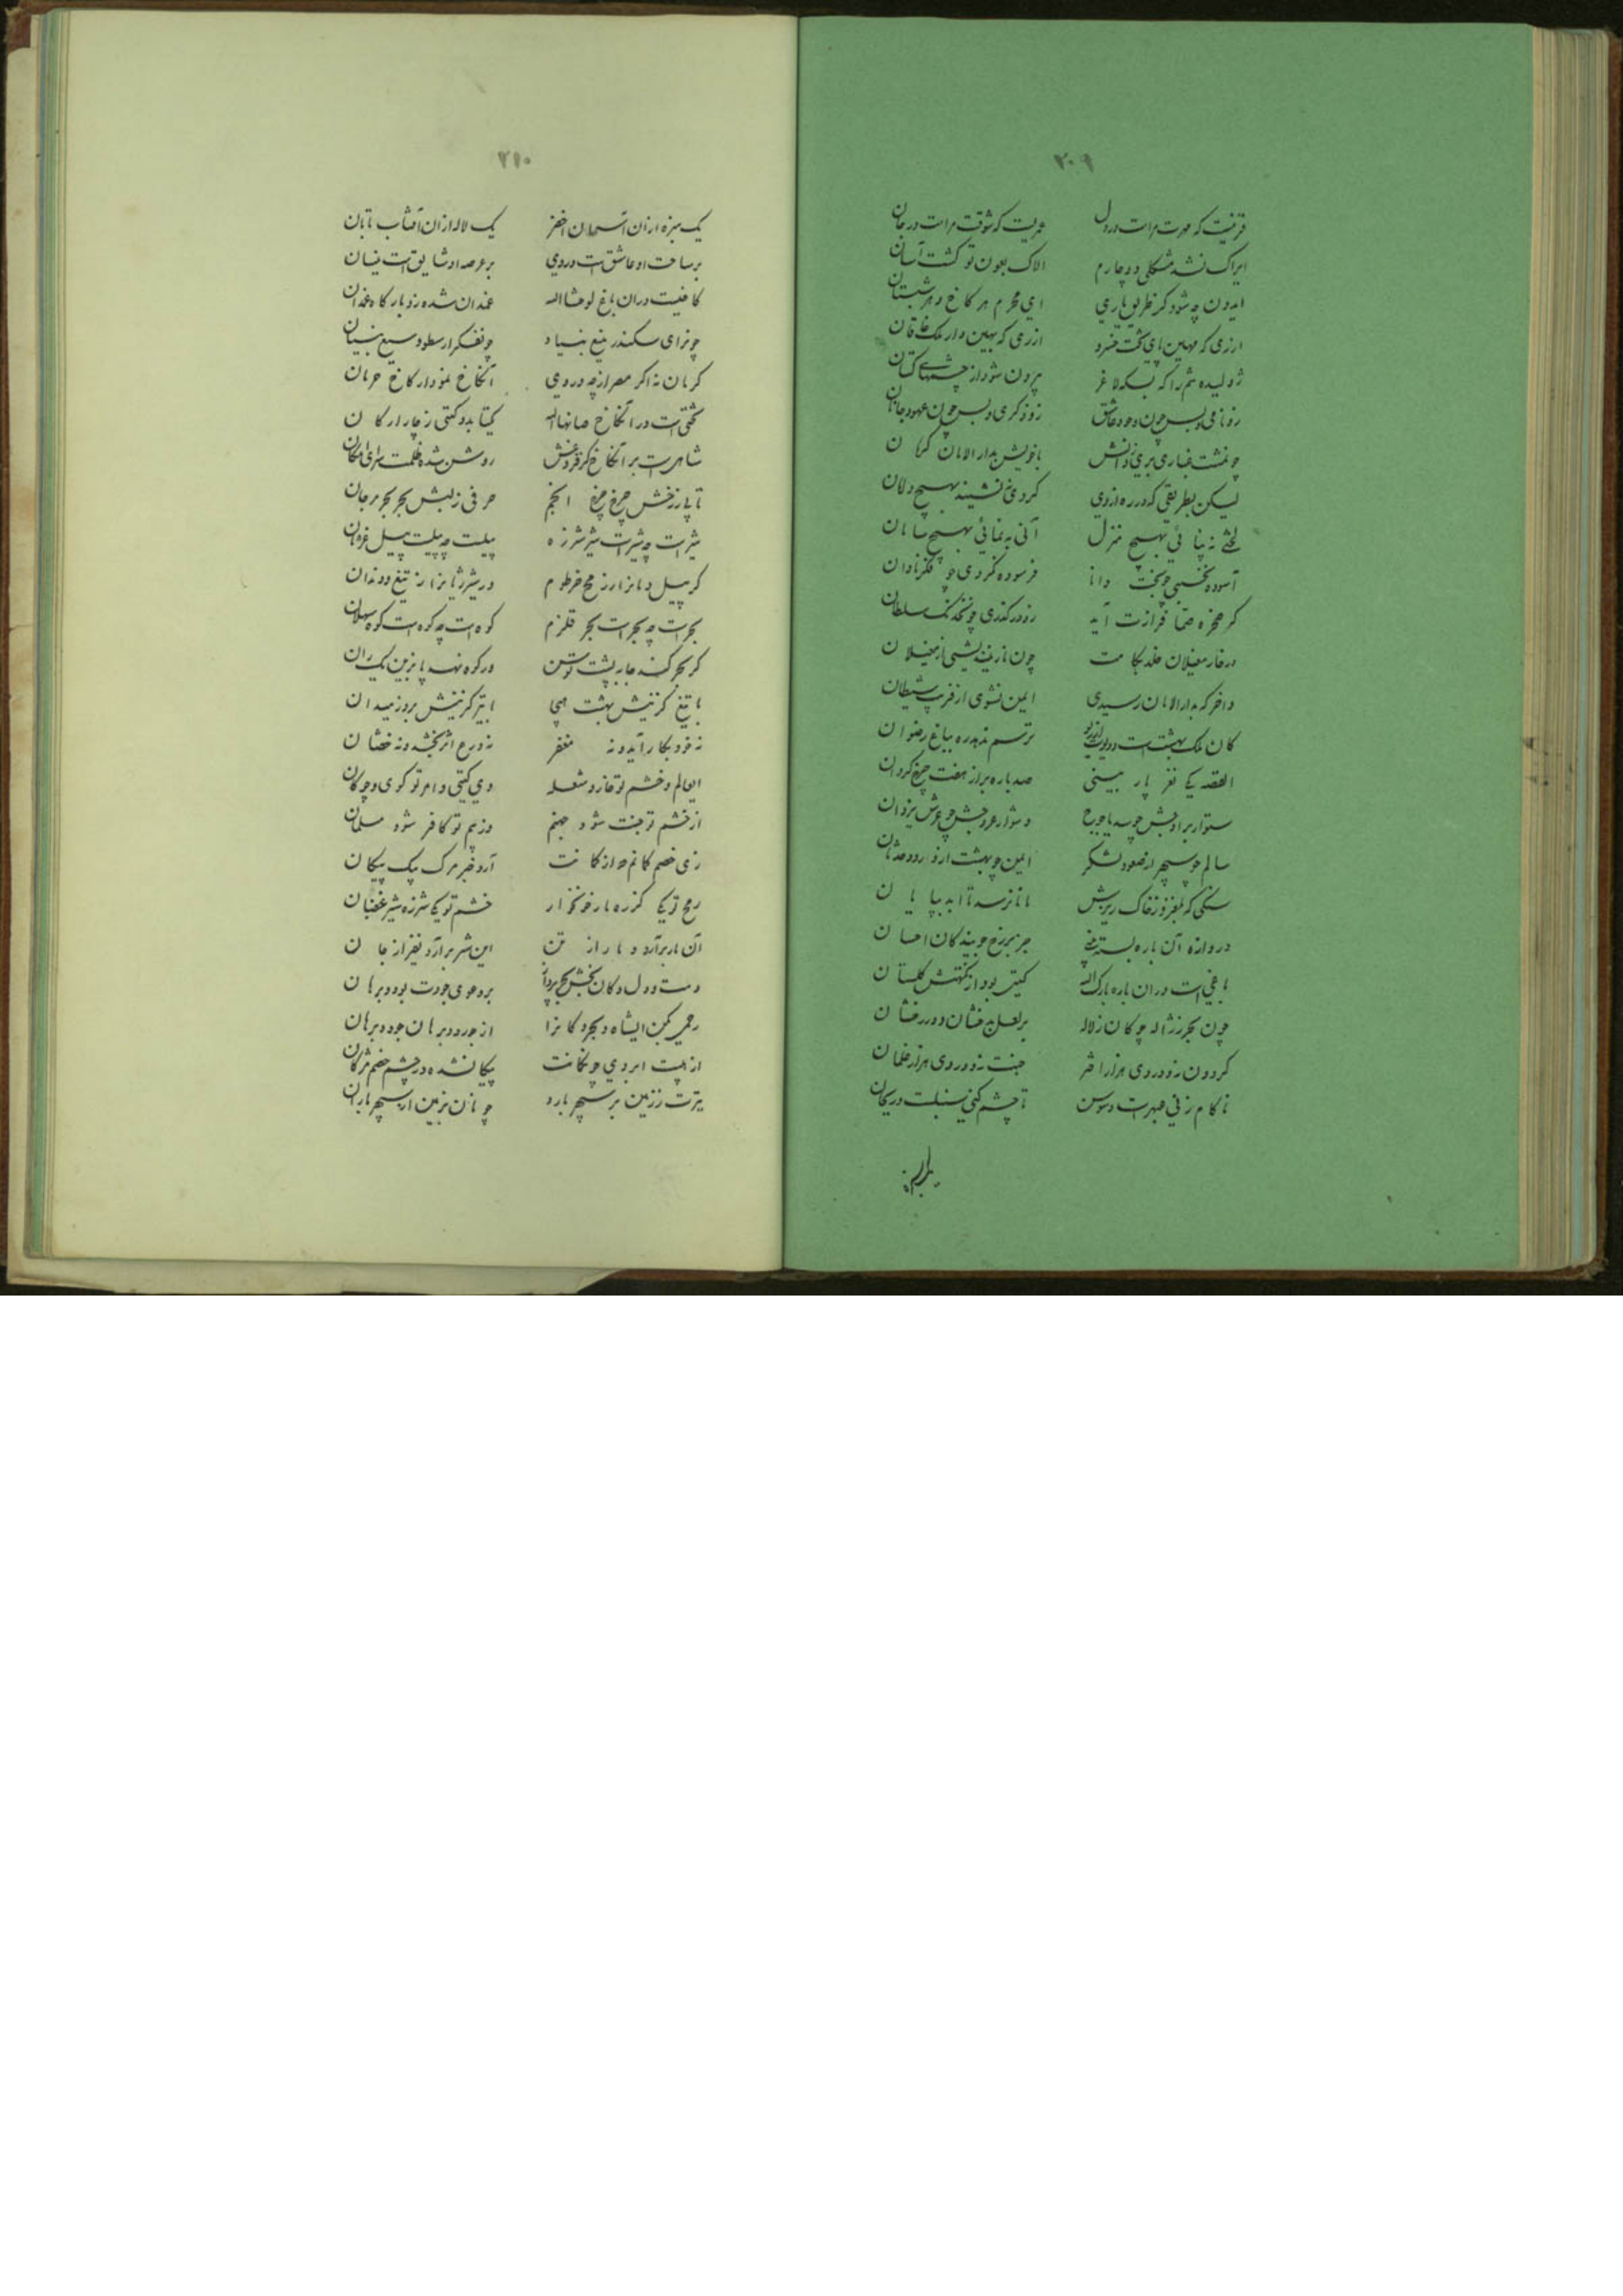 ۲۰۹
قرنیست که مهرت مراست در دل عمریست که شوقت مراست در جان
ایراک نشد مشکلی دوچارم الاک بعون تو گشت آسان
ایدون چه شود گر طریق یاری ای محرم هر کاخ و هر شبستان
ارزی که مهین پای تخت خسرو ازری که بهین دار ملک خاقان
ژولیده سم را که بسکه لاغر بیرون شود از چشمهای کتان
زو نامی و بس چون وجود عاشق زو ذکری و بس چون عهود جانان
چونشت غباری بری ز دانش با خویش بدار الامان کرمان
لیکن بطریقی که در ره از وی گردی ننشیند بهیچ دلان
لختی نپائی بهیچ منزل آنی نمائی بهیچ سامان
آسوده نخسبی چو بخت دانا فرسوده نگردی چو فکر نادان
گر صخره صما فرازت آید زو درگذری چون خدنگ سلطان
در خار مغیلان خلد بکامت چون نار نیندیشی از مغیلان
و آخر که بدار الامان رسیدی ایمن نشوی از فریب شیطان
کان ملک بهشت است و دیو است اندر او ترسم ندهد ره بباغ رضوان
القصه یکی نغز پار بینی صد باره براز هفت چرخ گردان
ستوار براوجش چو سد یاجوج دشوار عروجش چو عرش یزدان
سالم چو سپهر از صعود لشکر ایمن چو بهشت از ورود حدثان
سنگی که بلغزد ز خاک ریزش مانا نرسد تا ابد بپایان
دروازه آن باره بسته بینی جز بر رخ جویندگان احسان
باغی است در آن باره بارک الله گیتی بود از نکهتش گلستان
چون بحر ز ژاله چو کان ز لاله بر لعل بدخشان و در رخشان
گردون نه و در وی هزار اختر جنت نه و در وی هزار غلمان
تا کام زنی عبهر است و سوسن تا چشم کنی سنبلست و ریحان
۲۱۰
یک سبزه از آن آسمان اخضر یک لاله از آن آفتاب تابان
بر ساحت او عاشق است و دی بر عرصه او شایق است نیسان
کاخیست در آن باغ لوحش الله غمدان شده زو بارگاه غمدان
چون رای سکندر منیع بنیاد چون فکر ارسطو وسیع بنیان
کرمان نه اگر مصر از چه در وی آنکاخ نمودار کاخ هرمان
تختی است در آنکاخ صانها الله کیتا بدو گیتی ز چار ارکان
شاهی است بر آنکاخ کز فروغش روشن شده ظلمت سرای امکان
تا پای رخش چرخ چرخ انجم حرفی ز لبش بحر بحر مرجان
شیر است چه شیر است شیر شرزه پیلست چه پیلست پیل غژمان
گر پیل دمانرا ز رمح خرطوم ور شیر ژیانرا ز تیغ دندان
بحر است چه بحر است بحر قلزم کوه است چه کوه است کوه سهلان
گر بحر کند جا به پشت توسن ور کوه نهد پا بزین یکران
با تیغ گر بینیش بدشت هیجا با تیر گر بینیش بروز میدان
نه خود بکار آید و نه مغفر نه درع اثر بخشد و نه خفتان
ای عالم و خشم تو قار و شعله وی گیتی و امر تو گوی و چوگان
از خشم تو جنت شود جهنم وز بیم تو کافر شود مسلمان
زی خصم کمانم چو از کمانت آرد خبر مرگ پیک پیکان
رمح تو یکی گزره مار خونخوار خشم تو یکی شرزه شیر غضبان
آن مار برآرد دمار از تن این شیر برآرد نفیر از جان
دست و دل و کان بخش بحر پرداز بر دعوی جودت بود دو برهان
رحمی بکن ایشاه و بحر و کان را از جور دو برهان جود و برهان
از هیبت ابروی چون کمانت پیکان شده در چشم خصم مژگان
تیرت ز زمین بر سپهر بارد چونان بزمین از سپهر باران